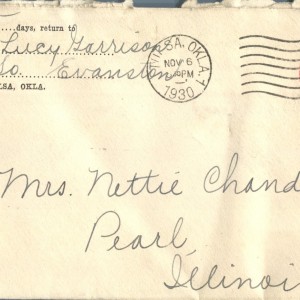 days, return to
Lucy Garrison
So. Evanston
LSA, OKLA.
TULSA, OKLA. 1
NOV 6
PM
1930
Mrs. Nettie Chand
Pearl,
Illinois